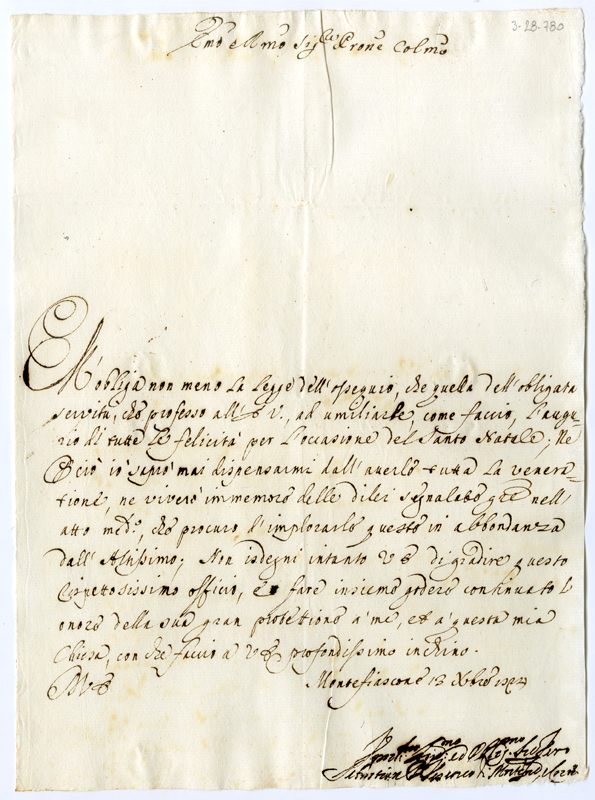 3-28-780
Emo e Rmo Sig.re Prone Colmo
M'obliga non meno la legge dell'ossequio, che quella dell'obligata
servitù, che professo all'E V., ad umiliarle, come faccio, l'augu-
rio di tutte le felicità per l'occasione del Santo Natale; Ne
P ciò io saprò mai dispensarmi dall'averle tutta la venera-
tione, ne viverò immemore delle di lei segnalate gtie nell'
atto med.o, che procuro l'implorarle queste in abbondanza
dall'Altissimo; Non isdegni intanto V E di gradire questo
rispettosissimo officio, e fare insieme godere continuato l'
onore della sua gran protettione a me, et a questa mia
Chiesa, con che faccio a V E profondissimo inchino.
D V E Montefiascone 13 Xbre
Sebastiano Vescovo di Montef.